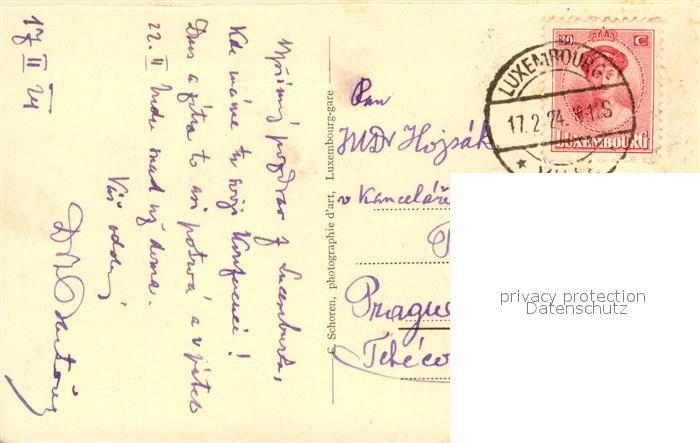 17 II 24
Upřímný pozdrav z Luxemburku,
kde máme tu svoji konferenci!
Dnes a zítra to asi potrvá a v pátek
22. II budu snad už doma.
Váš oddaný
Schoren, photographie d'art, Luxembourg-gare
Pan
JUDr Hojsák
v kanceláři
Prague
Tchéco
LUXEMBOURG
17.2.24.
20 C
LUXEMBOURG
privacy protection
Datenschutz